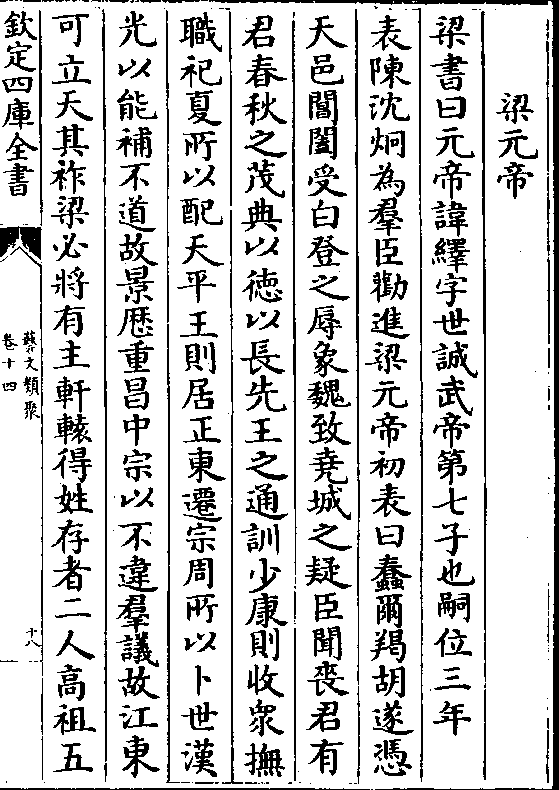 梁元帝
梁書曰元帝諱繹字世誠武帝第七子也嗣位三年
表陳沈炯為羣臣勸進梁元帝初表曰蠢爾羯胡遂憑
天邑閶闔受白登之辱象魏致堯城之疑臣聞喪君有
君春秋之茂典以徳以長先王之通訓少康則收衆撫
職祀夏所以配天平王則居正東遷宗周所以卜世漢
光以能補不道故景厯重昌中宗以不違羣議故江東
可立天其祚梁必將有主軒轅得姓存者二人高祖五
欽定四庫全書
藝文類聚
卷十四
十八